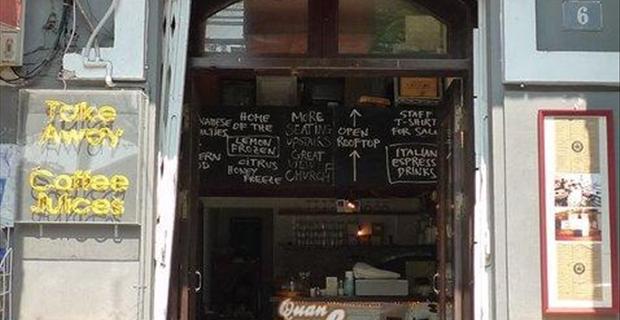 6
Take
Away
Coffee
Juices
HOME
OF THE
LEMON
FROZEN
CITRUS
HONEY
FREEZE
MORE
SEATING
UPSTAIRS
GREAT
VIEW
CHURCH
OPEN
ROOFTOP
STAFF
T-SHIRT
FOR SALE
ITALIAN
ESPRESS
DRINKS
Quan